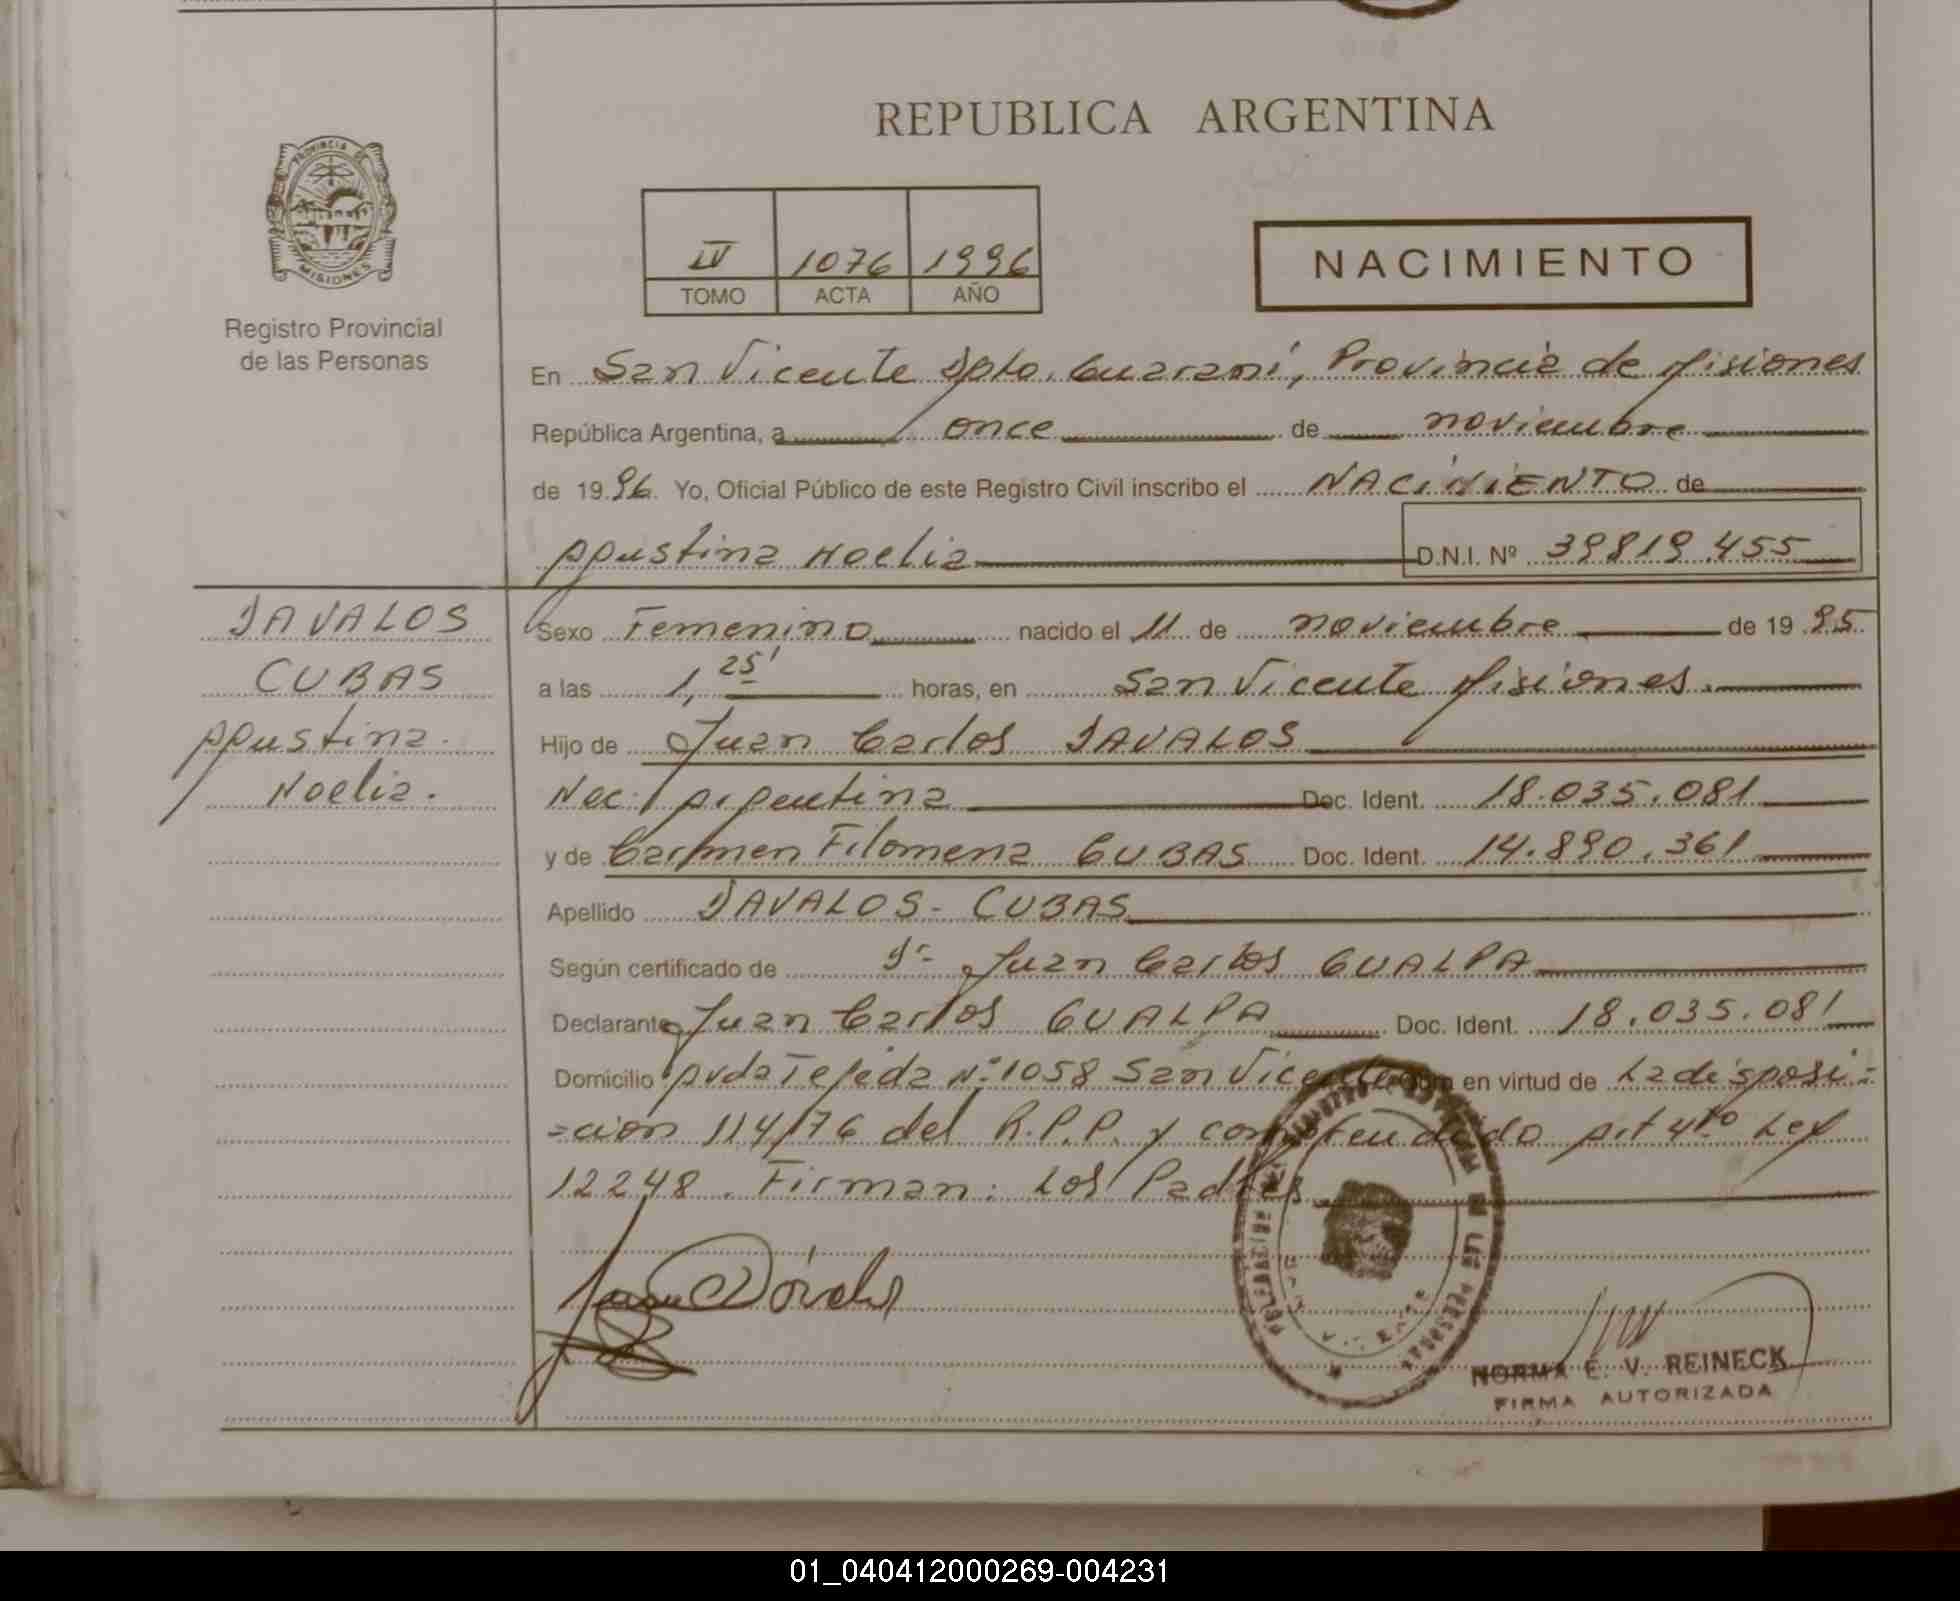 REPUBLICA ARGENTINA
PROVINCIA DE
MISIONES
Registro Provincial
de las Personas
IV 1076 1996
TOMO ACTA AÑO
NACIMIENTO
En San Vicente Dpto. Guaraní, Provincia de Misiones
República Argentina, a once de noviembre
de 19 96. Yo, Oficial Público de este Registro Civil inscribo el NACIMIENTO de
Agustina Noelia D.N.I. Nº 39819.455
DAVALOS
CUBAS
Agustina.
Noelia.
Sexo Femenino nacido el 11 de noviembre de 19 95
a las 1,25' horas, en San Vicente Misiones.
Hijo de Juan Carlos DAVALOS
Nac. Argentina Doc. Ident. 18.035.081
y de Carmen Filomena CUBAS Doc. Ident. 14.890.361
Apellido DAVALOS - CUBAS
Según certificado de Dr- Juan Carlos GUALPA
Declarante Juan Carlos GUALPA Doc. Ident. 18.035.081
Domicilio Avda Tejeda Nº 1058 San Vicente en virtud de La disposi=
=cion 114/76 del R.P.P. y comprendido Art 4to Ley
12248. Firman: Los Padres
NORMA E. V. REINECK
FIRMA AUTORIZADA
01_040412000269-004231